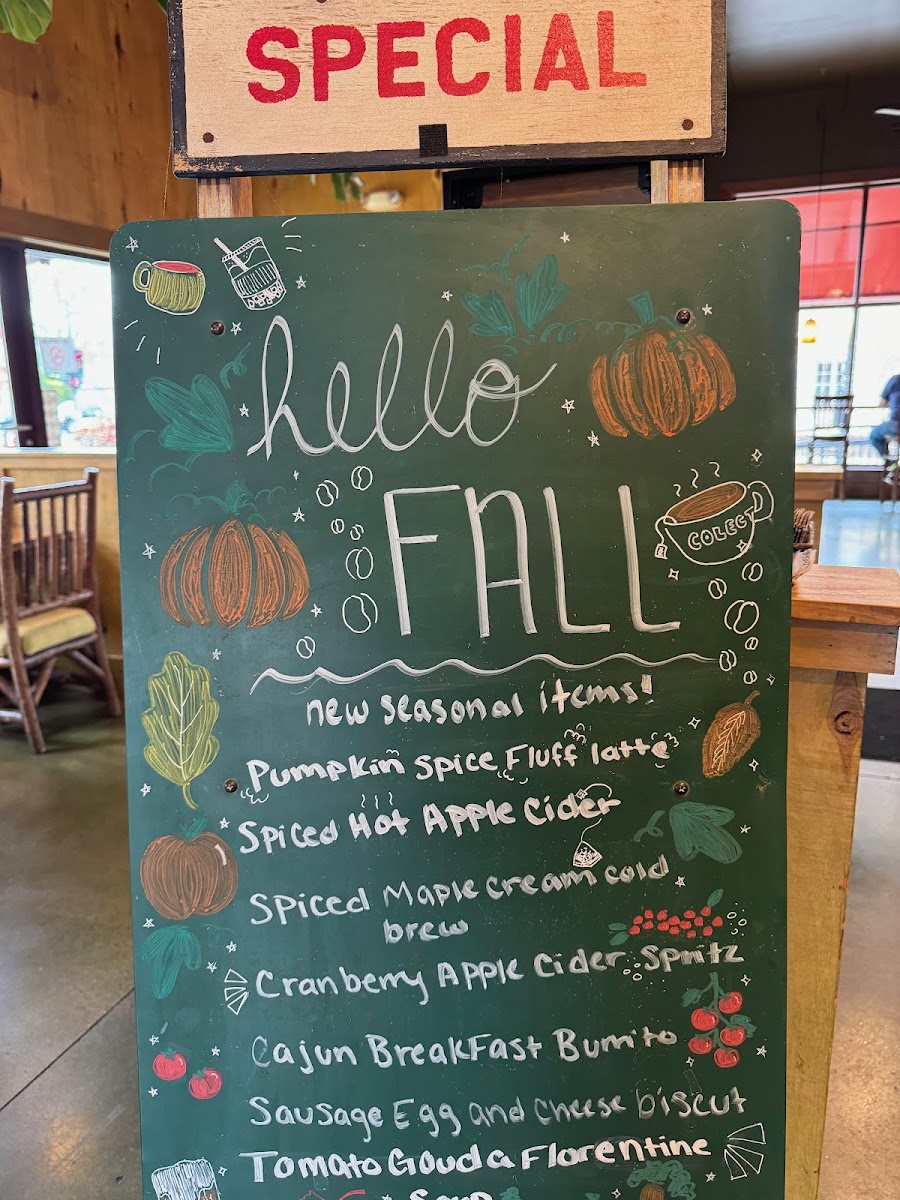 SPECIAL
hello
FALL
COLECT
new seasonal items!
Pumpkin spice Fluff latte
Spiced Hot Apple Cider
Spiced Maple cream cold
brew
Cranberry Apple Cider Spritz
Cajun BreakFast Burrito
Sausage Egg and Cheese biscut
Tomato Gouda Florentine
Soup